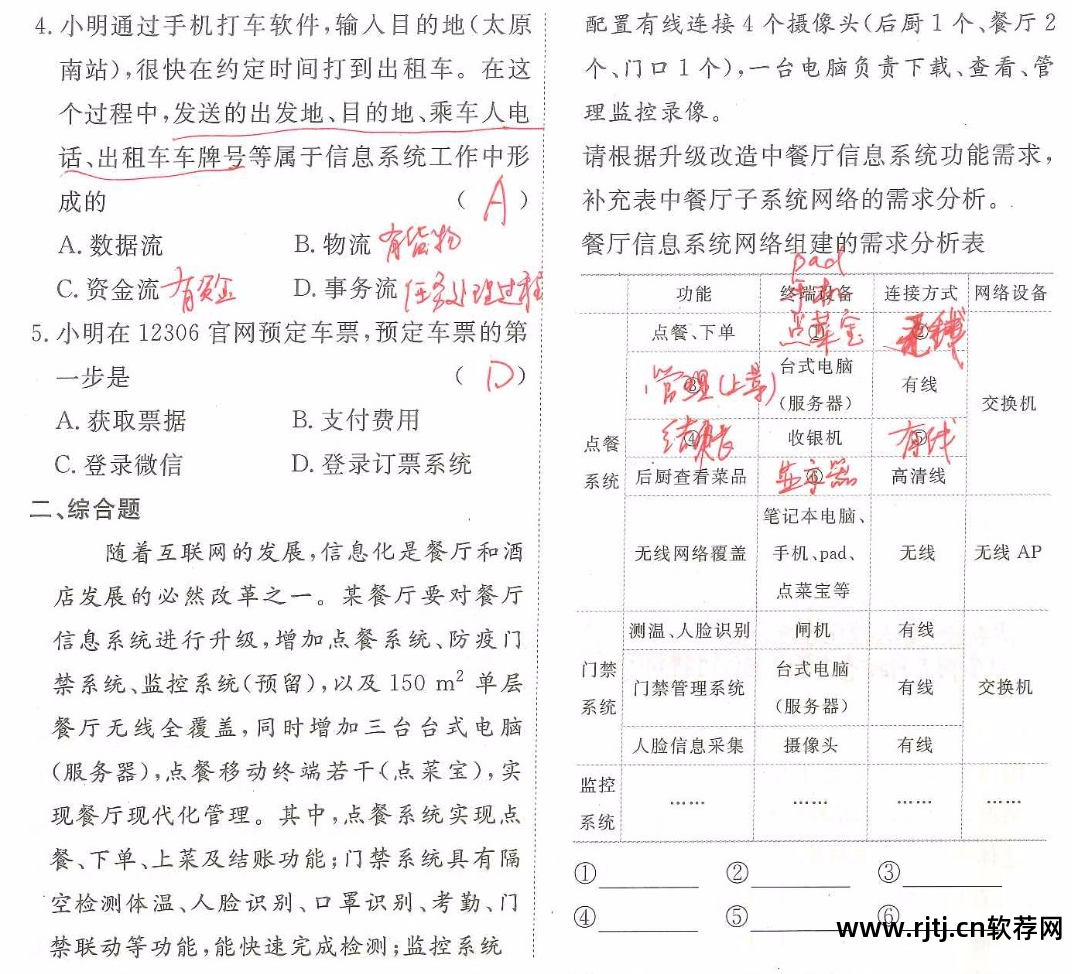 4. 小明通过手机打车软件,输入目的地(太原
南站),很快在约定时间打到出租车。在这
个过程中,发送的出发地、目的地、乘车人电
话、出租车车牌号等属于信息系统工作中形
成的 ( A )
A. 数据流 B. 物流 有货物
C. 资金流 有资金 D. 事务流 任务处理过程
5. 小明在 12306 官网预定车票,预定车票的第
一步是 ( D )
A. 获取票据 B. 支付费用
C. 登录微信 D. 登录订票系统
二、综合题
随着互联网的发展,信息化是餐厅和酒
店发展的必然改革之一。某餐厅要对餐厅
信息系统进行升级,增加点餐系统、防疫门
禁系统、监控系统(预留),以及 150 m² 单层
餐厅无线全覆盖,同时增加三台台式电脑
(服务器),点餐移动终端若干(点菜宝),实
现餐厅现代化管理。其中,点餐系统实现点
餐、下单、上菜及结账功能;门禁系统具有隔
空检测体温、人脸识别、口罩识别、考勤、门
禁联动等功能,能快速完成检测;监控系统
配置有线连接 4 个摄像头(后厨 1 个、餐厅 2
个、门口 1 个),一台电脑负责下载、查看、管
理监控录像。
请根据升级改造中餐厅信息系统功能需求,
补充表中餐厅子系统网络的需求分析。
餐厅信息系统网络组建的需求分析表
pad
手机
功能 终端设备 连接方式 网络设备
点餐、下单 ① 点菜宝 ② 无线
③ 管理(上菜) 台式电脑 有线 交换机
(服务器)
点餐 ④ 结账 收银机 ⑤ 有线
系统 后厨查看菜品 ⑥ 显示器 高清线
笔记本电脑、
无线网络覆盖 手机、pad、 无线 无线 AP
点菜宝等
测温、人脸识别 闸机 有线
门禁 门禁管理系统 台式电脑 有线 交换机
系统 (服务器)
人脸信息采集 摄像头 有线
监控 …… …… …… ……
系统
① ② ③
④ ⑤ ⑥
www.rjtj.cn软荐网